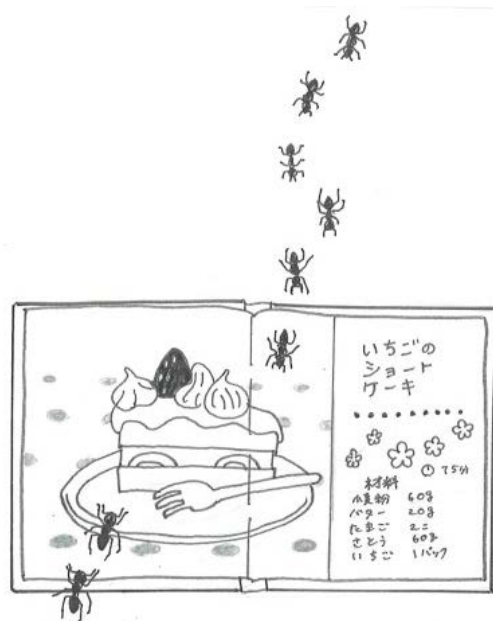 いちごの
ショート
ケーキ
75分
材料
小麦粉 60g
バター 20g
たまご 2コ
さとう 60g
いちご 1パック